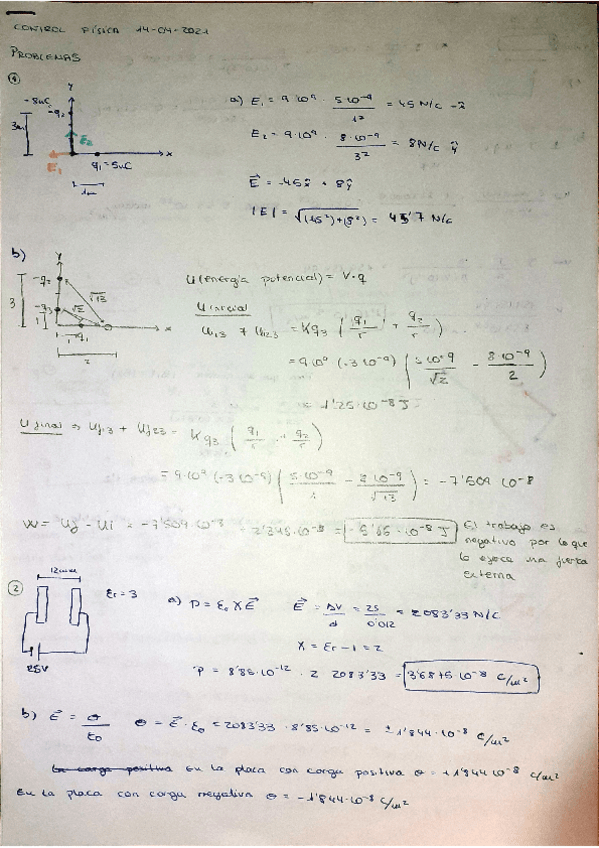 CONTROL FÍSICA 14-04-2021
PROBLEMAS
①
a) E₁ = 9·10⁹ · 5·10⁻⁹ / 1² = 45 N/C -x̂
E₂ = 9·10⁹ · 8·10⁻⁹ / 3² = 8 N/C ŷ
E⃗ = -45x̂ + 8ŷ
|E| = √(45²)+(8²) = 45'7 N/C
y
-8uC
-q₂
3m
E₂
E₁
q₁=5uC
x
1m
b)
y
-q₂
√13
3
-q₃
√2
1
q₁
x
1
2
U(energía potencial) = V·q
U inicial
U₁₃ + U₂₃ = Kq₃ ( q₁/r + q₂/r )
= 9·10⁹ (-3·10⁻⁹) ( 5·10⁻⁹/√2 - 8·10⁻⁹/2 )
= 1'25·10⁻⁸ J
U final ⇒ Uf₁₃ + Uf₂₃ = Kq₃ ( q₁/r + q₂/r )
= 9·10⁹ (-3·10⁻⁹) ( 5·10⁻⁹/1 - 8·10⁻⁹/√13 ) = -7'509·10⁻⁸
W = Uf - Ui =
El trabajo es
negativo por lo que
lo ejerce una fuerza
externa
②
12mm
Er=3
25V
a) P = ε₀ X E⃗
E⃗ = ΔV/d = 25/0'012 = 2083'33 N/C
X = Er - 1 = 2
P = 8'85·10⁻¹² · 2 · 2083'33 = 3'6875·10⁻⁸ C/m²
b) E⃗ = σ/ε₀ σ = E⃗·ε₀ = 2083'33 · 8'85·10⁻¹² = ±1'844·10⁻⁸ C/m²
La carga positiva En la placa con carga positiva σ = +1'844·10⁻⁸ C/m²
En la placa con carga negativa σ = -1'844·10⁻⁸ C/m²